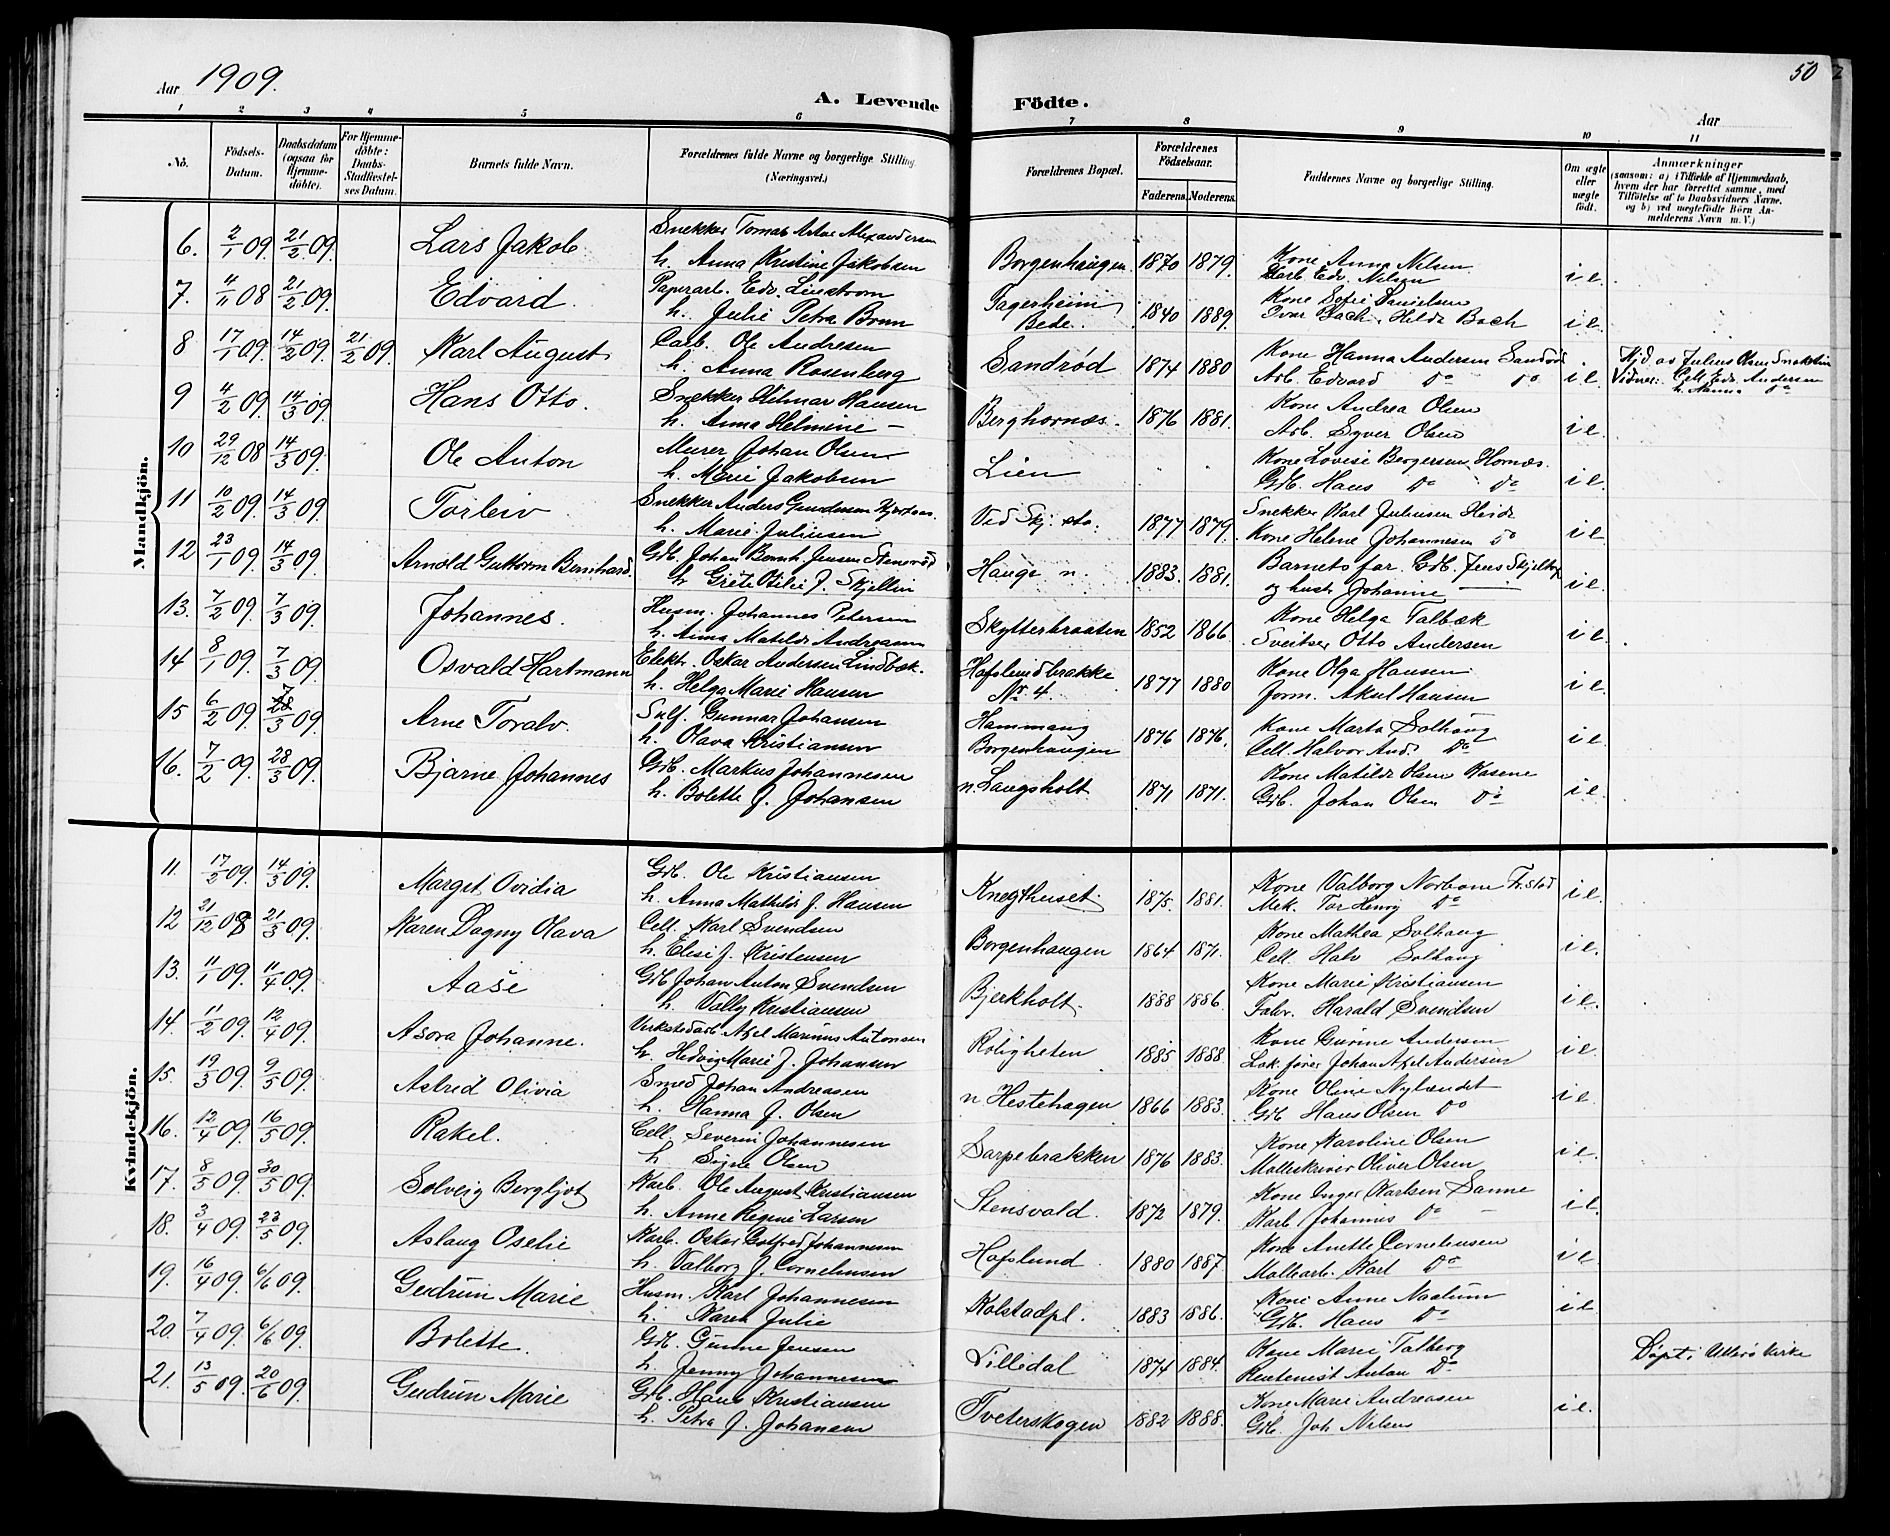 Aar 1909. A. Levende Födte. Aar 50
1 2 3 4 5 6 7 8 9 10 11
No. Födsels-Datum. Daabsdatum (ogsaa for Hjemmedöbte). For Hjemmedöbte: Daabs-Stadfæstelses Datum. Barnets fulde Navn. Forældrenes fulde Navne og borgerlige Stilling. (Næringsvei.) Forældrenes Bopæl. Forældrenes Födselsaar. Faderens. Moderens. Faddernes Navne og borgerlige Stilling. Om ægte eller uægte födt. Anmærkninger (saasom: a) i Tilfælde af Hjemmedaab, hvem der har forrettet samme, med Tilföielse af to Daabsvidners Navne, og b) ved uægtefödte Börn Anmelderens Navn m. V.)
Mandkjön.
6. 2/1 09. 21/2 09. Lars Jakob. Snekker Tomas Artur Alexandersen
h. Anna Kristine Jakobsen Borgenhaugen 1870 1879. Kone Anna Nilsen
Edv. Nilsen i e.
7. 4/11 08 21/2 09. Edvard. Papirarb. Edv. Linstrøm
h. Julie Petra Brun Fagerheim Bede. 1840 1889. Kone Sofie Danielsen
Ivar Bach, Hilda Bach i e.
8 17/1 09. 14/2 09. 21/2 09. Karl August Carb. Ole Andresen
h. Anna Rosenberg Sandrød 1874 1880 Kone Hanna Andersen Sandrød
Arb. Edvard Do Do i e. Hjd. av Julius Olsen
Vidner: Cell. Edv. Andersen
h. Hanna Do
9 4/2 09. 14/3 09. Hans Otto. Snekker Hilmar Hansen
h. Anna Helmine — Berghornæs. 1876 1881. Kone Andrea Olsen
Arb. Syver Olsen i e.
10 29/12 08 14/3 09. Ole Anton Murer Johan Olsen
h. Marie Jakobsen Lien Kone Lovise Bergersen Hornæs.
Grb. Hans Do Do i e.
11 10/2 09. 14/3 09. Torleiv Snekker Anders Gundersen
h. Marie Juliusen Ved Skj. st. 1877 1879. Snekker Karl Juliusen Heide
Kone Helene Johannesen Do i e.
12 23/1 09. 14/3 09. Arnold Guttorm Bernhard. Grb. Johan Bernh. Jensen Stensrød
h Gjete Otilie J. Skjellin Hauge n. 1883. 1881. Barnets far. Grb. Jens
og hustr Johanne — i e.
13. 7/2 09. 7/3 09. Johannes. Husm. Johannes Petersen
h. Anna Matilde Andreasen Skytterbraaten 1852 1866. Kone Helga Talbæk
Sveitser Otto Andersen i e.
14 8/1 09. 7/3 09. Osvald Hartmann Elekt. Oskar Andersen Lindbæk.
h. Helga Marie Hansen Hafslundbrakke Nr. 4. 1877 1880 Kone Olga Hansen
form. Aksel Hansen i e.
15 6/2 09. 7/3 09. Arne Toralv. Sulf. Gunnar Johansen
h. Olava Kristiansen Hammang Borgenhaugen 1876 1876. Kone Marta Solhaug
Cell. Halvor And. Do i e.
16. 7/2 09. 28/3 09. Bjarne Johannes Grb. Markus Johannesen
h. Bolette J. Johansen n. Langsholt 1871 1871. Kone Matilde Olsen Kasene
Grb. Johan Olsen Do i e.
Kvindekjön.
11. 17/2 09. 14/3 09. Margit Ovidia Grb. Ole Kristiansen
h. Anna Mathilde J. Hansen Knegthuset 1875. 1881. Kone Valborg Norbom Fr.stad
Mek. Tor Henry Do i e.
12 21/12 08 21/3 09. Karen Dagny Olava Cell. Karl Svendsen
h. Elise J. Kristensen Borgenhaugen 1864 1871. Kone Mathea Solhaug
Cell. Halv Solhaug i e.
13. 11/1 09. 11/4 09. Aase Grb Johan Anton Svendsen
h. Valby Kristiansen Bjerkholt. 1888 1886. Kone Marie Kristiansen
Fabr. Harald Svendsen i e.
14. 11/2 09. 12/4 09. Asora Johanne. Verkstedarb Axel Marinius Antonsen
h. Hedvig Marie J. Johansen Roligheten 1885 1888. Kone Gurine Andersen
Lok.fører Johan Axel Andersen i e.
15. 19/3 09. 9/5 09. Astrid Olivia Smed Johan Andreassen
h. Hanna J. Olsen n. Hestehagen 1866 1883. Kone Oline Nylændet
Grb. Hans Olsen Do i e.
16. 12/4 09. 16/5 09. Rakel. Cell. Severin Johannesen
h Signe Olsen Sarpebrakken 1876 1883. Kone Karoline Olsen
Malleskriver Oliver Olsen i e.
17. 8/5 09. 30/5 09. Solveig Bergljot Karb. Ole August Kristiansen
h. Anne Regine Larsen Stensvald. 1872 1879. Kone Inger Karlsen Sanne
Karb Johannes Do — i e.
18. 3/4 09. 23/5 09. Aslaug Oselie Karb. Oskar Gotfred Johannesen
h. Valborg J. Corneliussen Hafslund 1880 1887. Kone Anette Corneliussen
Mallearb. Karl Do i e.
19. 16/4 09. 6/6 09. Gudrun Marie Husm. Karl Johannesen
h. Karen Julie Kolstadpl. 1883 1886. Kone Anne Naalum
Grb. Hans Do i e.
20. 7/4 09. 6/6 09. Bolette. Grb. Gunne Jensen
h. Jenny Johannesen Lilledal 1874 1884. Kone Marie Talberg
Rentenist Anton Do Døpt i Ullerø Kirke
21. 13/5 09. 20/6 09. Gudrun Marie Grb. Hans Kristiansen
h. Petra J. Johansen Tveterskogen 1882 1888. Kone Marie Andreasen
Grb. Joh Nilsen i e.